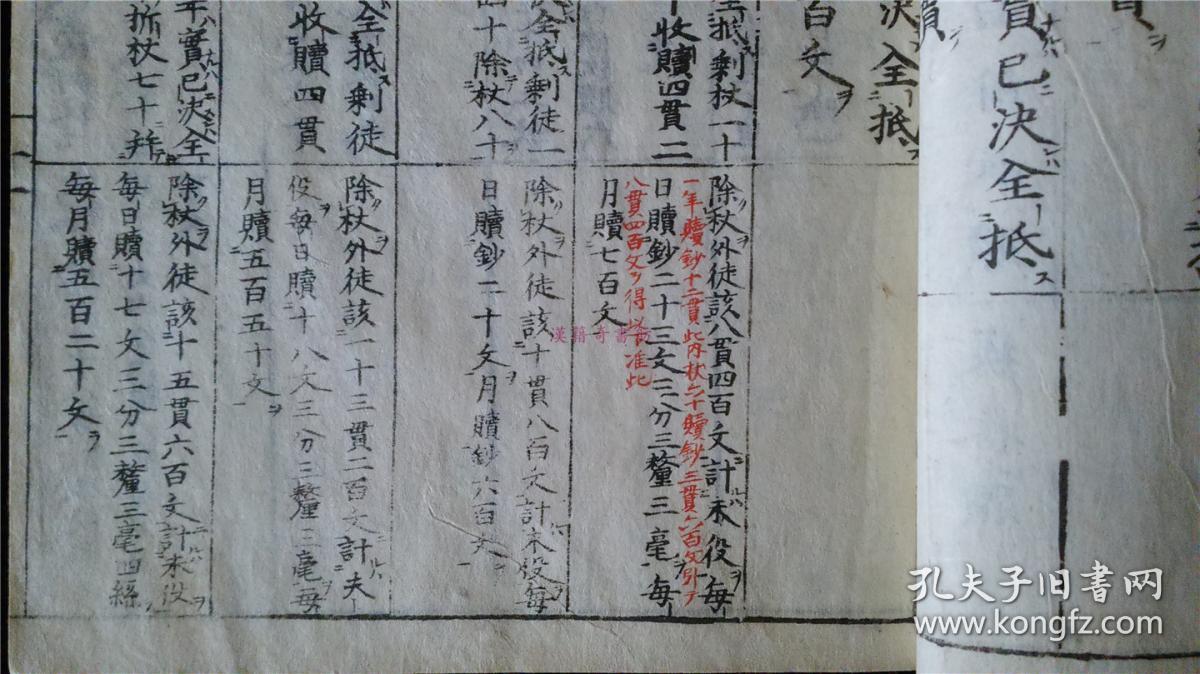 貫ヲ
實已決全抵ス
贖ヲ
決全抵ス
百文ヲ
全抵剩杖一十
收贖四貫二
除杖外徒該八貫四百文計未役毎
一年贖鈔十二貫此内杖六十贖鈔三貫六百文引テ
日贖鈔二十三文三分三釐三毫毎
八貫四百文ヲ得以下准此
月贖七百文
全抵剩徒一
四十除杖八十
除杖外徒該十貫八百文計未役毎
日贖鈔二十文月贖鈔六百文
全抵剩徒
收贖四貫
除杖外徒該一十三貫二百文計夫
役毎日贖十八文三分三釐三毫毎
月贖五百五十文
年實已決全
折杖七十并
除杖外徒該十五貫六百文計未役
毎日贖十七文三分三釐三毫四絲
毎月贖五百二十文
漢籍奇書
孔夫子旧书网
www.kongfz.com